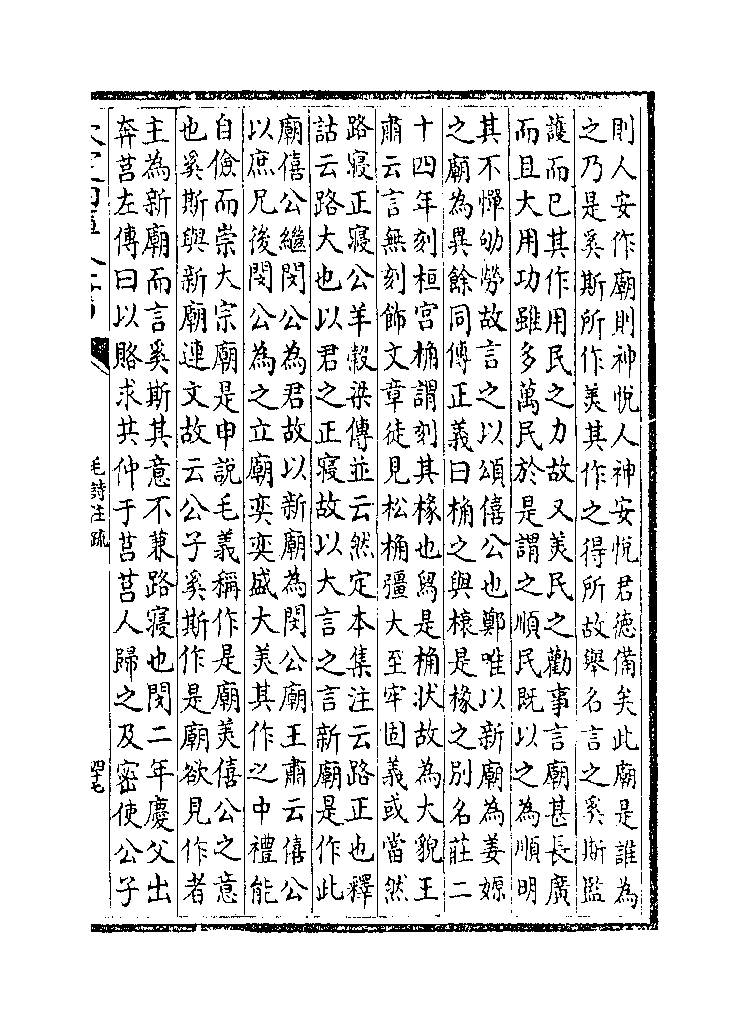 則人安作廟則神悅人神安悅君德備矣此廟是誰為
之乃是奚斯所作美其作之得所故舉名言之奚斯監
護而已其作用民之力故又美民之勸事言廟甚長廣
而且大用功雖多萬民於是謂之順民既以之為順明
其不憚劬勞故言之以頌僖公也鄭唯以新廟為姜嫄
之廟為異餘同傳正義曰桷之與榱是椽之別名莊二
十四年刻桓宮桷謂刻其椽也舄是桷狀故為大貌王
肅云言無刻飾文章徒見松桷彊大至牢固義或當然
路寢正寢公羊穀梁傳並云然定本集注云路正也釋
詁云路大也以君之正寢故以大言之言新廟是作此
廟僖公繼閔公為君故以新廟為閔公廟王肅云僖公
以庶兄後閔公為之立廟奕奕盛大美其作之中禮能
自儉而崇大宗廟是申說毛義稱作是廟美僖公之意
也奚斯與新廟連文故云公子奚斯作是廟欲見作者
主為新廟而言奚斯其意不兼路寢也閔二年慶父出
奔莒左傳曰以賂求共仲于莒莒人歸之及密使公子
毛詩注疏